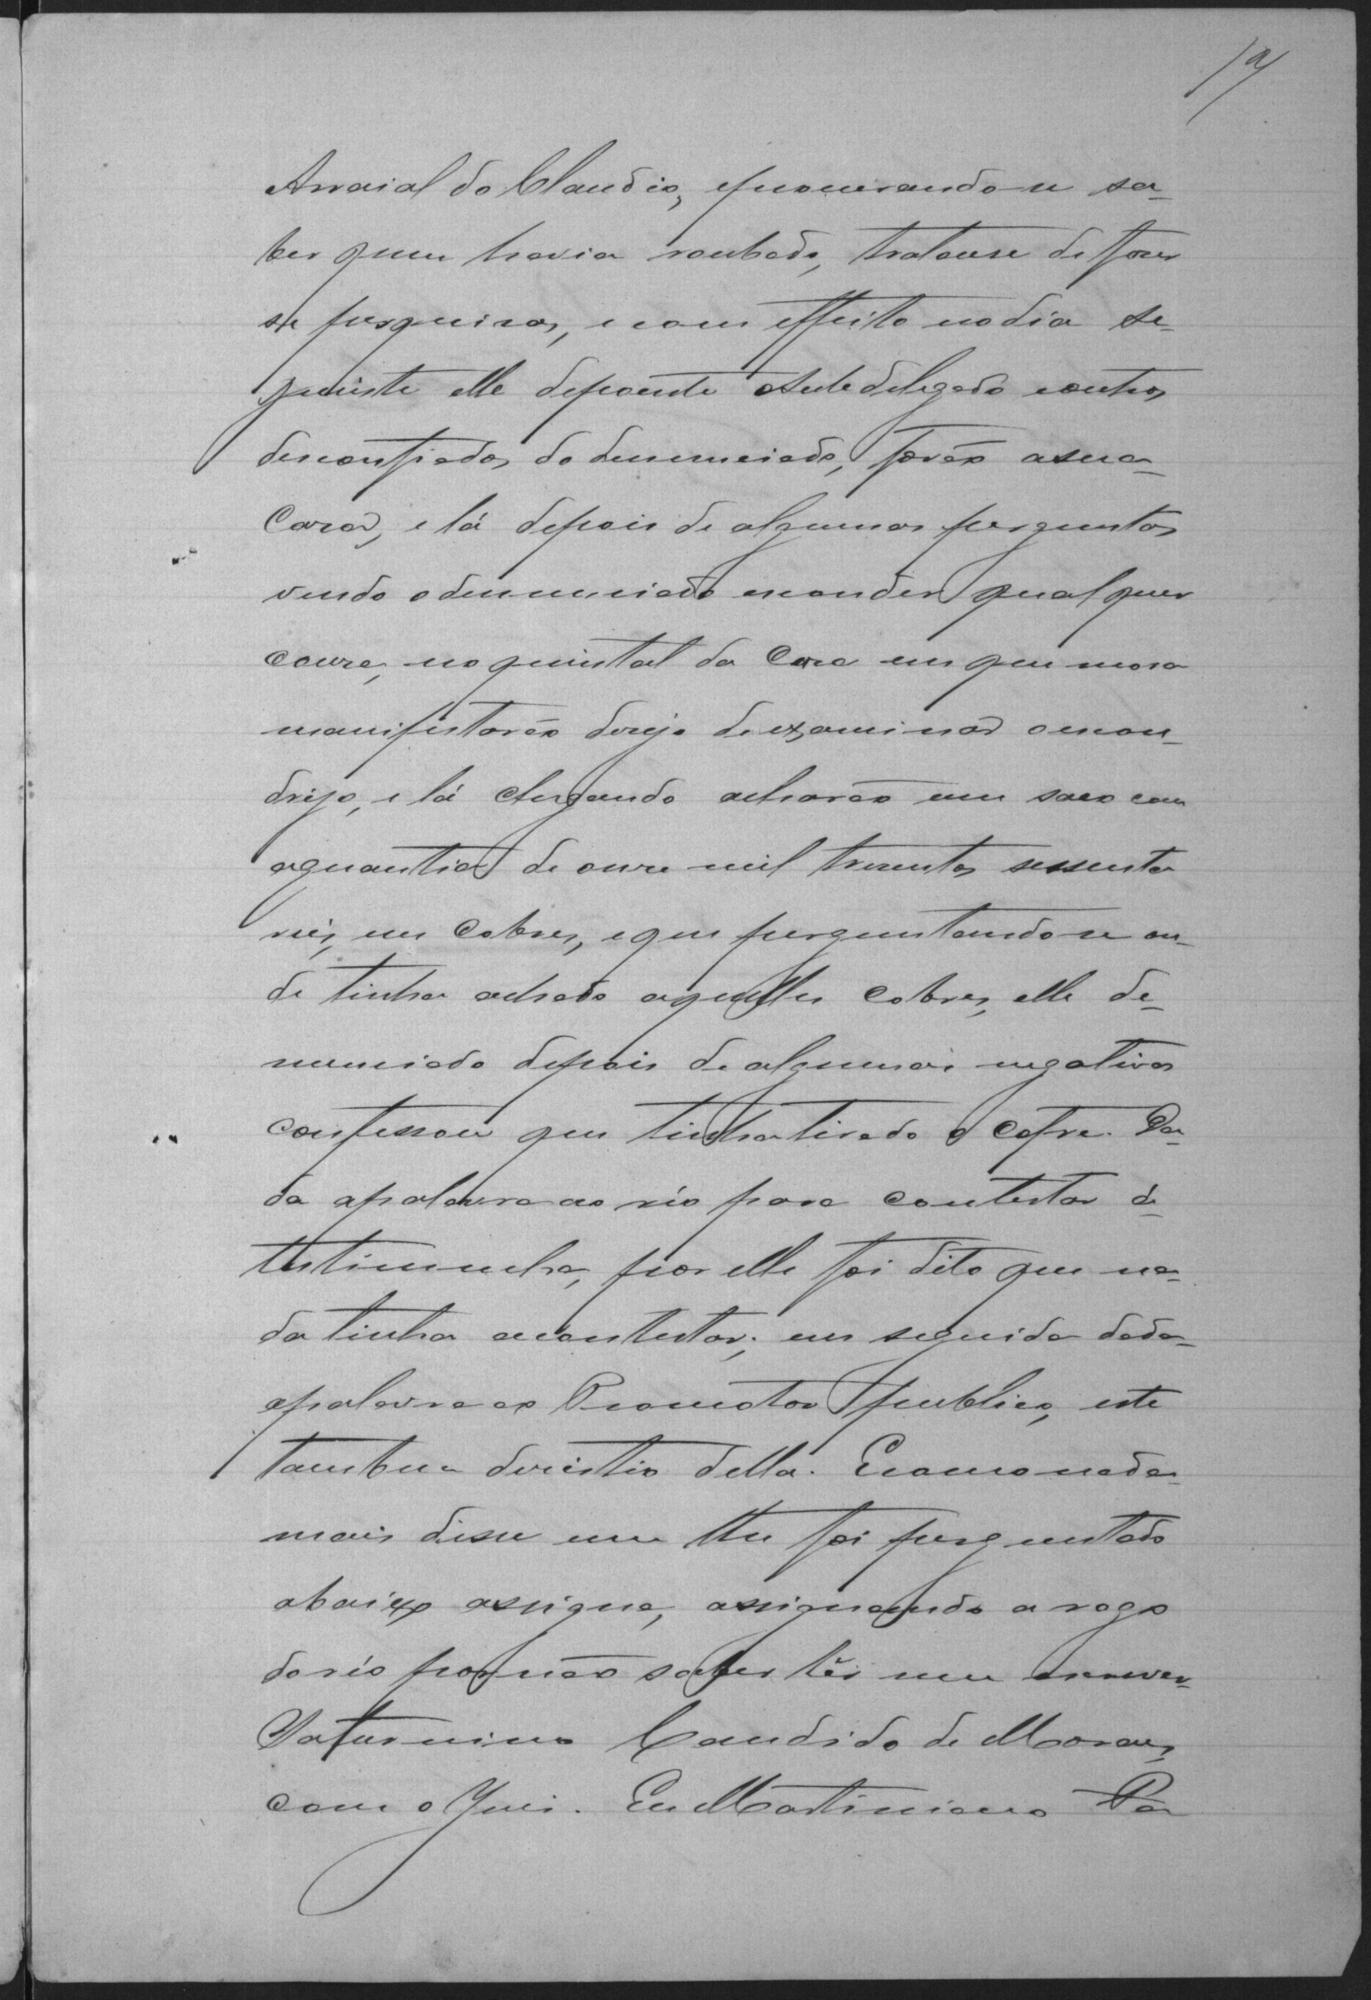 19
Arraial do Claudio, e procurando-se sa-
ber quem havia roubado, tratou-se de fazer
se pesquisas, e com effeito no dia se-
guinte elle depoente o Subdelegado e outros
desconfiados do denunciado, forão a sua
Casa, e lá depois de algumas perguntas
vendo o denunciado esconder qualquer
couza, no quintal da Caza em que mora
manifestarão dezejo de examinar o escon-
drijo, e lá chegando acharão um saco com
a quantia de onze mil trezentos sessenta
reis, em Cobres, e que perguntando-se on-
de tinha achado aquelles cobres, elle de-
nunciado depois de algumas negativas
confessou que tinha tirado o cofre. Da-
da a palavra ao réo para contestar á
testimunha, por elle foi dito que na-
da tinha a contestar; em seguida dada
a palavra ao Promotor publico, este
tambem desistio della. E como nada
mais disse nem lhe foi perguntado
abaixo assigna, assignando a rogo
do réo por não saber lêr nem escrever
Saturnino Candido de Moraes,
com o Juis. Eu Martiniano Pa